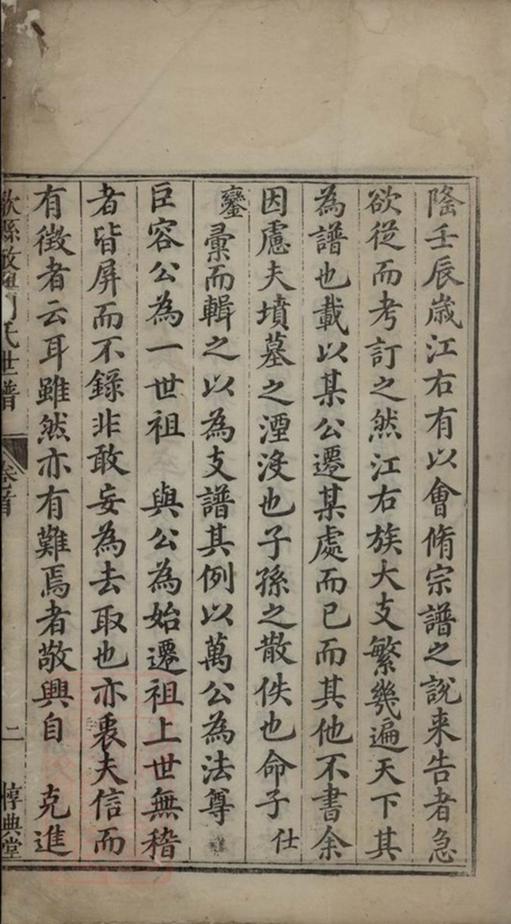 隆壬辰歳江右有以會脩宗譜之說来告者急
欲從而考訂之然江右族大支繁幾遍天下其
為譜也載以某公遷某處而已而其他不書余
因慮夫墳墓之湮没也子孫之散佚也命子仕
鑾彙而輯之以為支譜其例以萬公為法尊
巨容公為一世祖 與公為始遷祖上世無稽
者皆屏而不錄非敢妄為去取也亦裒夫信而
有徵者云耳雖然亦有難焉者敬興自 克進
歙縣 氏世譜 卷首 二 惇典堂